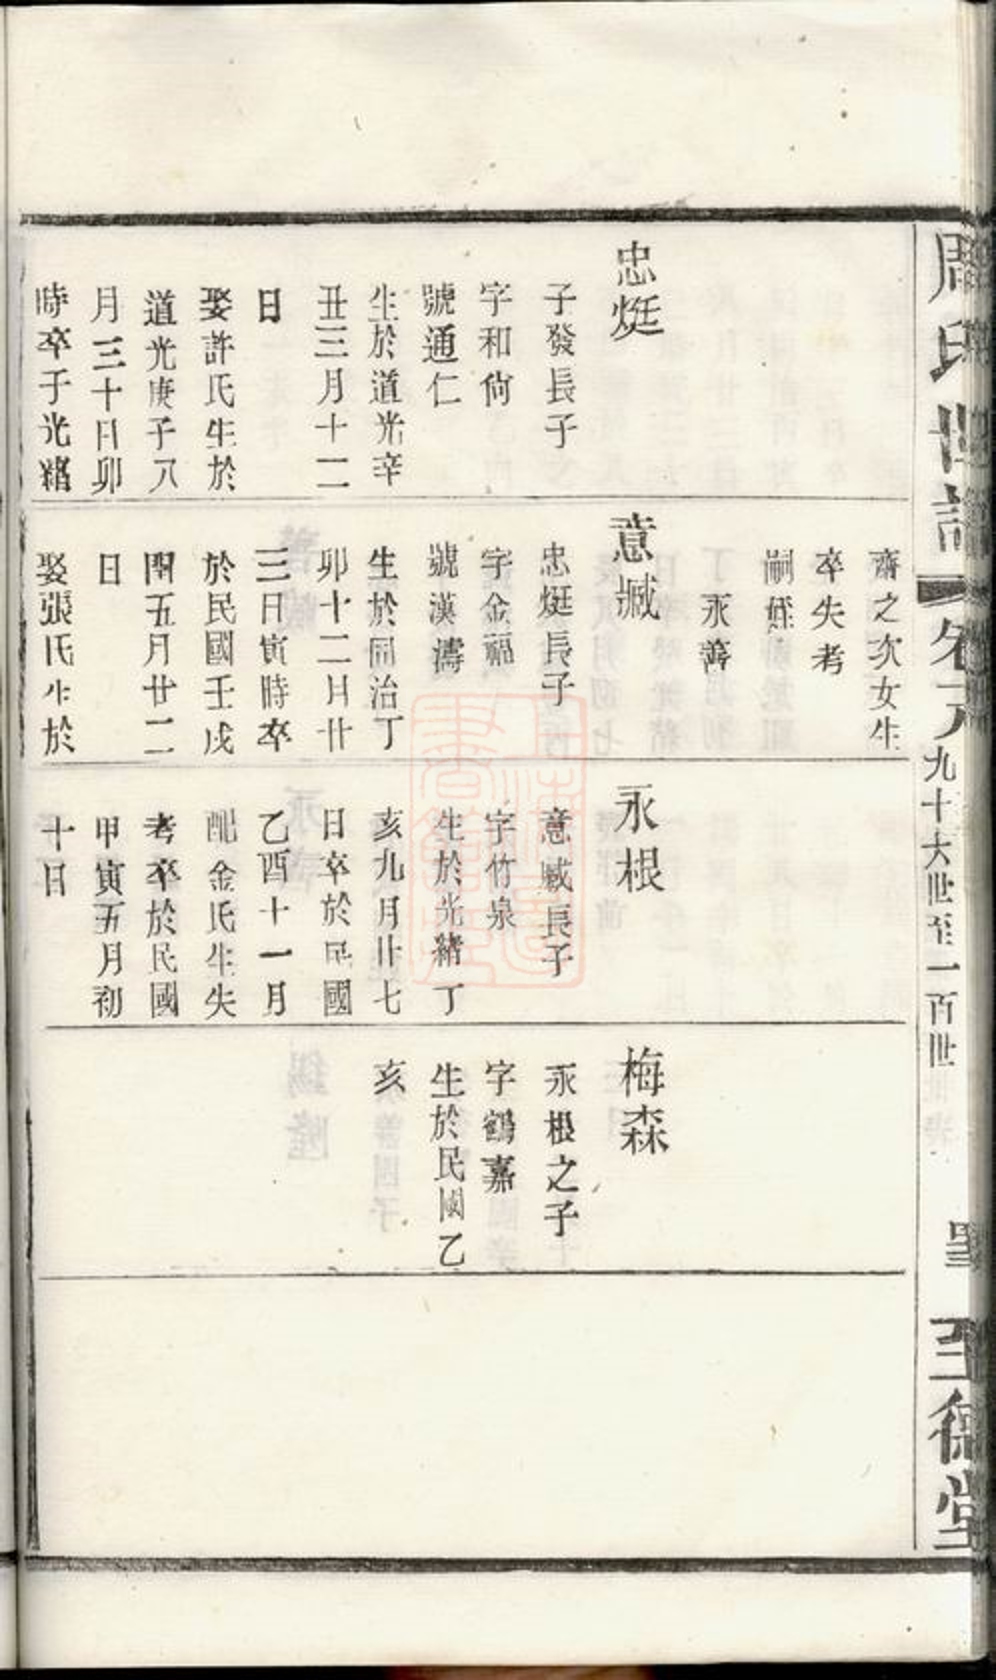 周氏世譜
卷六
九十六世至一百世
至德堂
忠烶
子發長子
字和尙
號通仁
生於道光辛
丑三月十二
日
娶許氏生於
道光庚子八
月三十日卯
時卒于光緒
齋之次女生
卒失考
嗣姪
永善
意臧
忠烶長子
字金福
號漢濤
生於同治丁
卯十二月廿
三日寅時卒
於民國壬戌
閏五月廿二
日
娶張氏生於
永根
意臧長子
字竹泉
生於光緒丁
亥九月廿七
日卒於民國
乙酉十一月
配金氏生失
考卒於民國
甲寅五月初
十日
梅森
永根之子
字鶴嘉
生於民國乙
亥